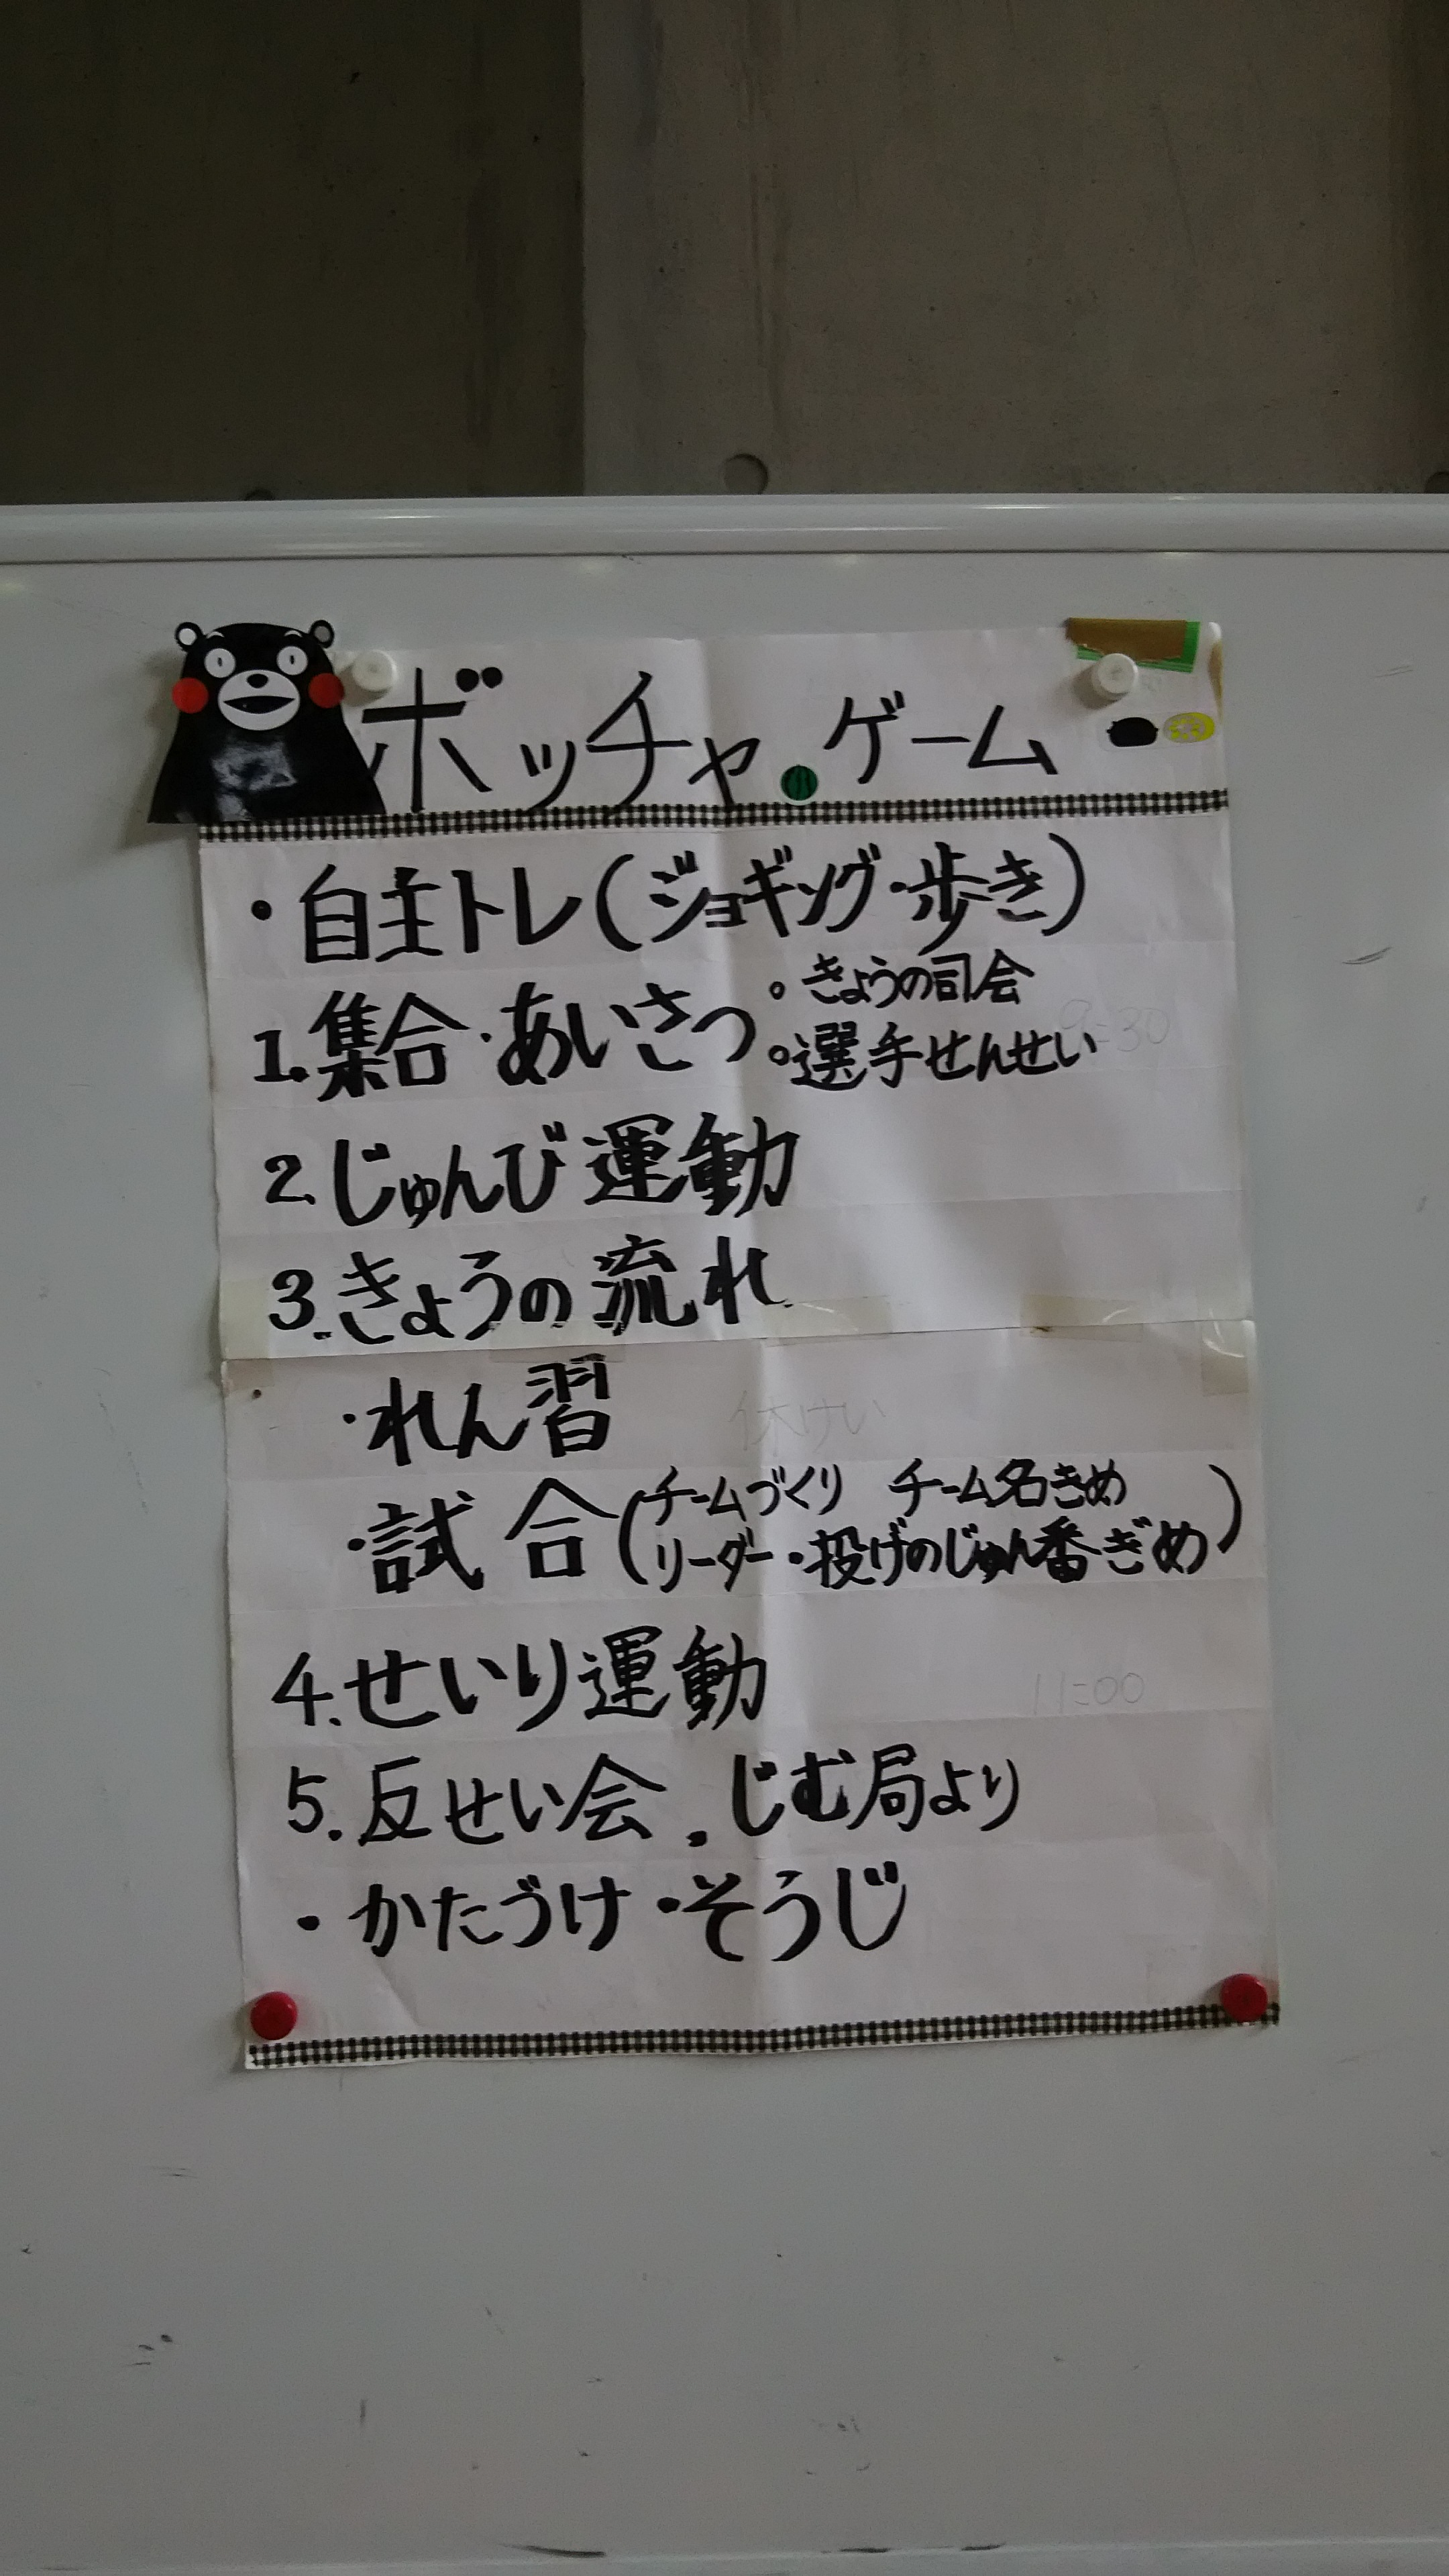 ボッチャ・ゲーム
・自主トレ(ジョギング・歩き)
1.集合・あいさつ
。きょうの司会
。選手せんせい
9:30
2.じゅんび運動
3.きょうの流れ
・れん習
休けい
・試合(チームづくり チーム名きめ
リーダー・投げのじゅん番ぎめ)
4.せいり運動
11:00
5.反せい会.じむ局より
・かたづけ・そうじ